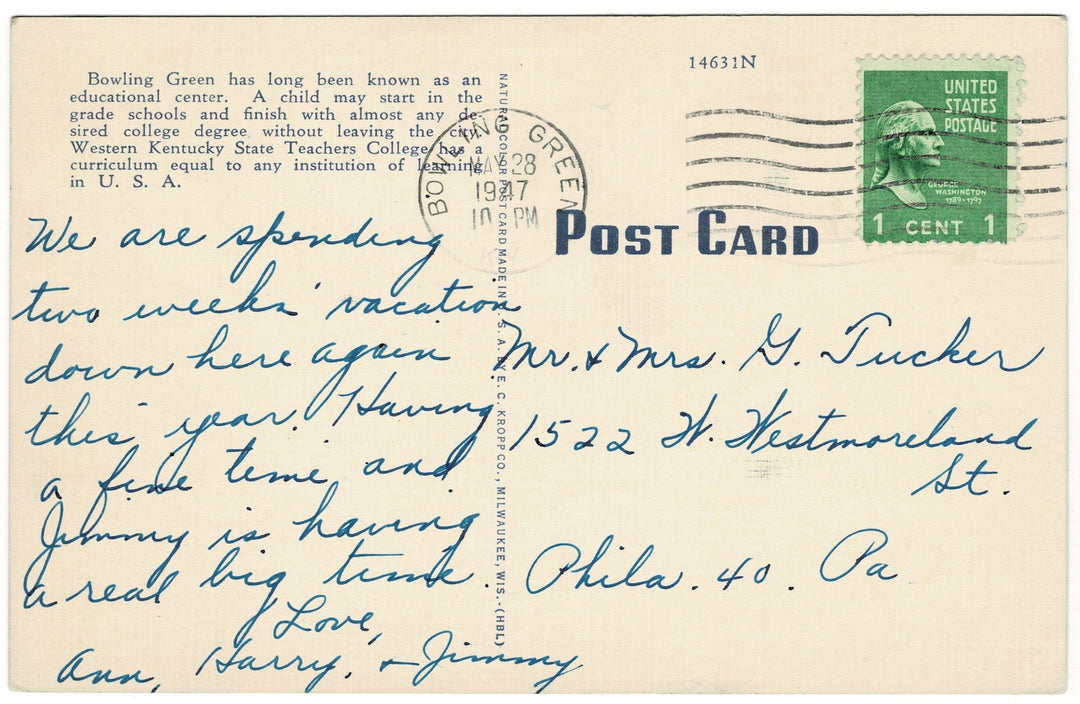 14631N
Bowling Green has long been known as an
educational center. A child may start in the
grade schools and finish with almost any de-
sired college degree without leaving the city.
Western Kentucky State Teachers College has a
curriculum equal to any institution of learning
in U. S. A.
NATURAL COLOR POST CARD MADE IN U. S. A. BY E. C. KROPP CO., MILWAUKEE, WIS.-(HBL)
BOWLING GREEN
MAY 28
1947
10 PM
KY.
UNITED
STATES
POSTAGE
GEORGE
WASHINGTON
1789-1797
1 CENT 1
POST CARD
We are spending
two weeks' vacation
down here again
this year. Having
a fine time and
Jimmy is having
a real big time.
Love,
Ann, Harry, & Jimmy
Mr. & Mrs. G. Tucker
1522 W. Westmoreland
St.
Phila. 40. Pa